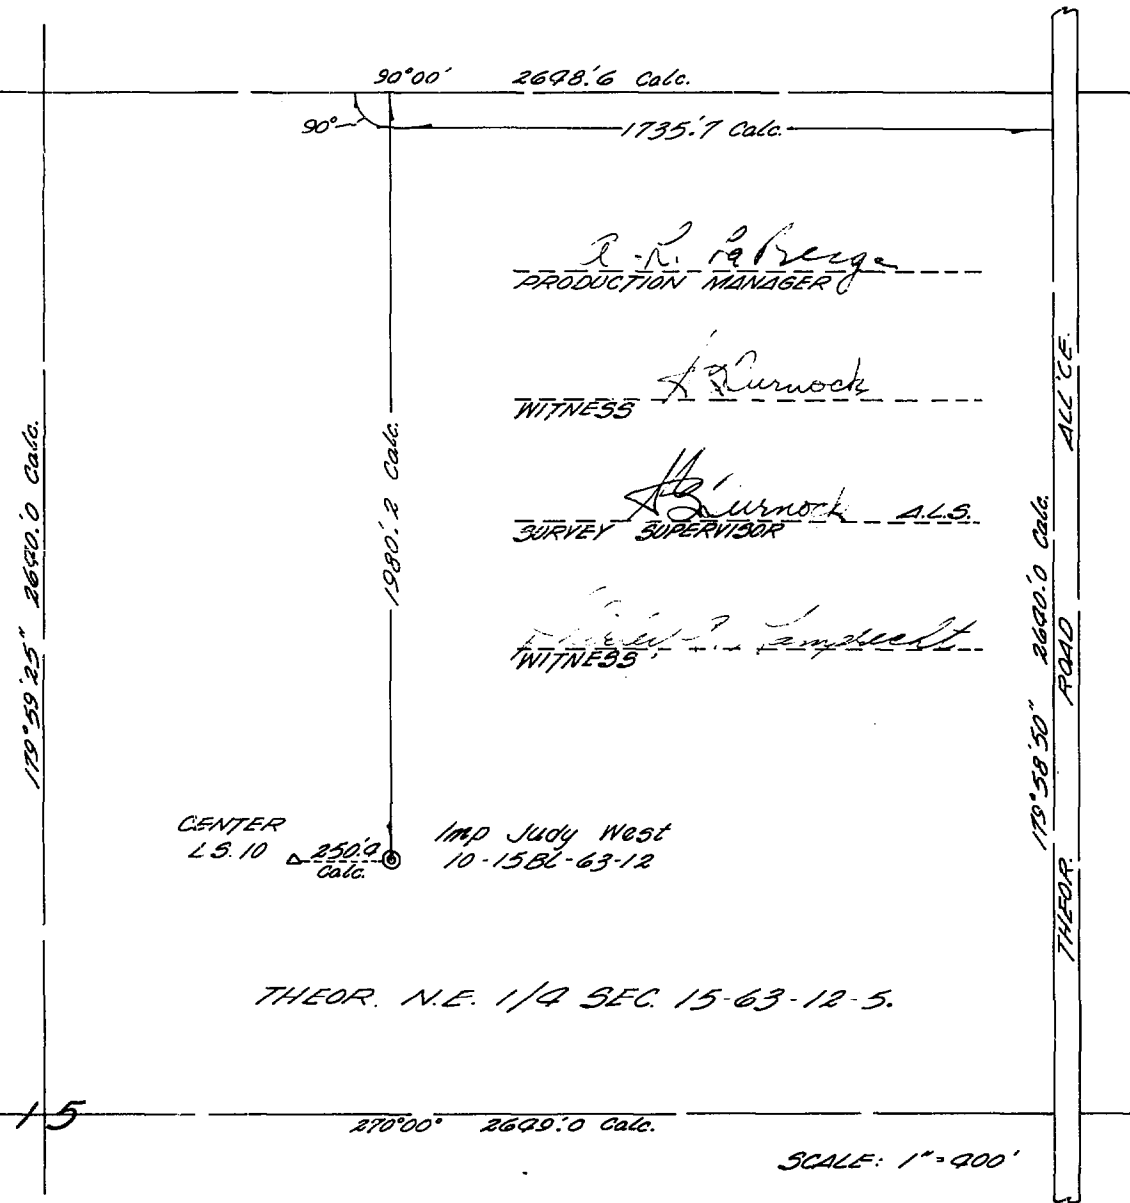 90°00' 2648.'6 Calc.
90°
1735.'7 Calc.
A. R. LaBerge
PRODUCTION MANAGER
Durnock
WITNESS
Durnock A.L.S.
SURVEY SUPERVISOR
Lamprecht
WITNESS
179°59'25" 2640.'0 Calc.
1980.'2 Calc.
179°58'50" 2640.'0 Calc.
THEOR. ROAD ALL'CE.
CENTER
L.S. 10
250.'4
Calc.
Imp Judy West
10-15BL-63-12
THEOR. N.E. 1/4 SEC. 15-63-12-5.
15
270°00" 2649.'0 Calc.
SCALE: 1"=400'